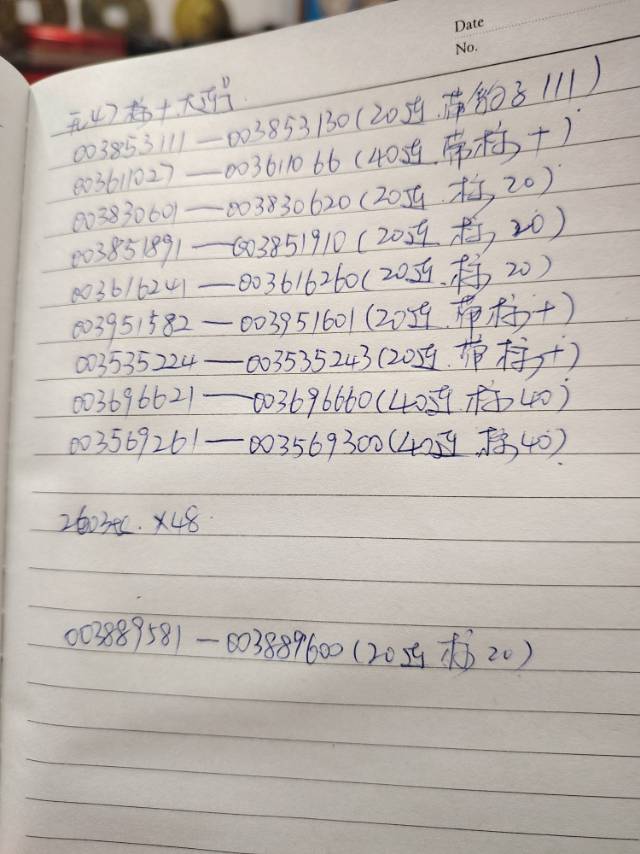 Date
No.
无47标十大连号
003853111—003853130(20连.带豹子111)
003611027—003611066(40连.带标十)
003830601—003830620(20连.标20)
003851891—003851910(20连.标20)
003616241—003616260(20连.标20)
003951582—003951601(20连.带标十)
003535224—003535243(20连.带标十)
003696621—003696660(40连.标40)
003569261—003569300(40连.标40)
×48
003889581—003889600(20连.标20)